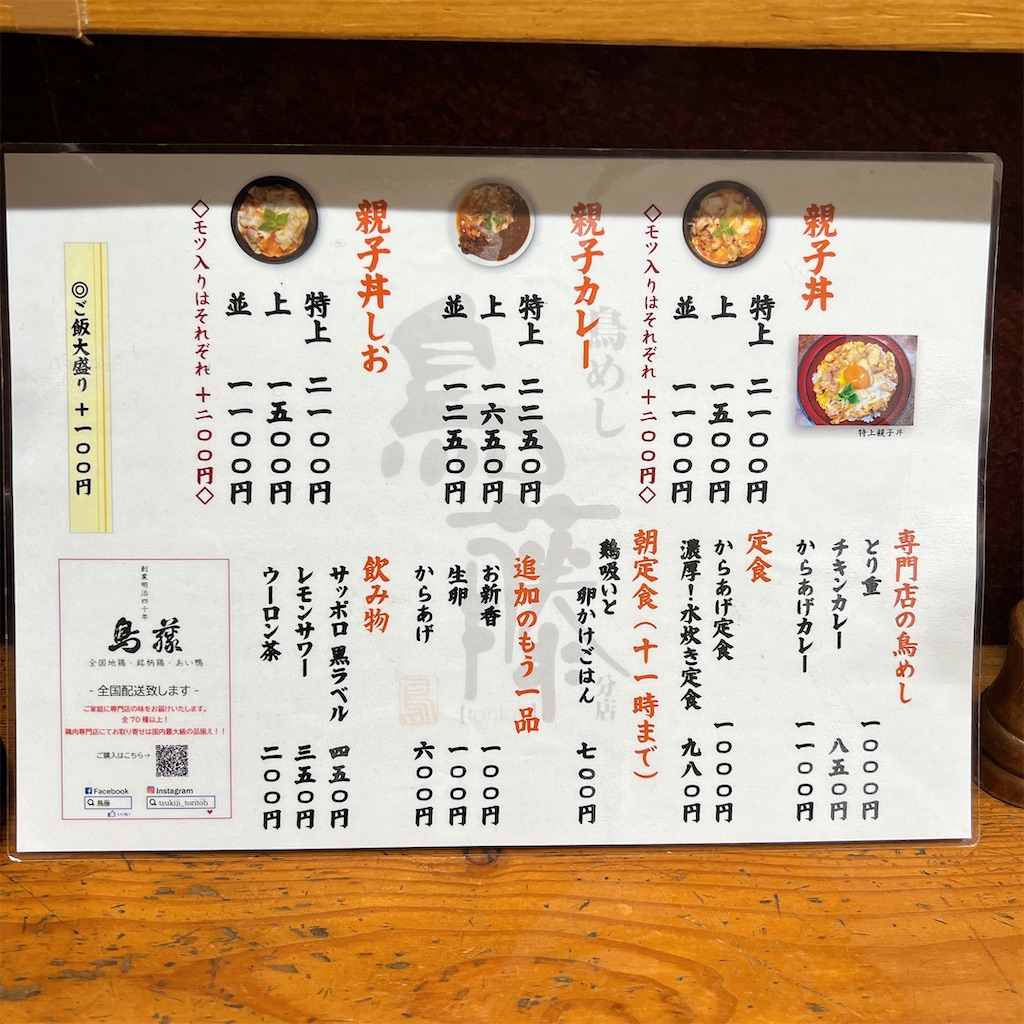 親子丼
特上 二一〇〇円
上 一五〇〇円
並 一一〇〇円
◇モツ入りはそれぞれ 十二〇〇円◇
特上親子丼
親子カレー
特上 二二五〇円
上 一六五〇円
並 一二五〇円
親子丼しお
特上 二一〇〇円
上 一五〇〇円
並 一一〇〇円
◇モツ入りはそれぞれ 十二〇〇円◇
◎ご飯大盛り 十一〇〇円
専門店の鳥めし
とり重 一〇〇〇円
チキンカレー 八五〇円
からあげカレー 一一〇〇円
定食
からあげ定食 一〇〇〇円
濃厚！水炊き定食 九八〇円
朝定食（十一時まで）
鶏吸いと
卵かけごはん 七〇〇円
追加のもう一品
お新香 一〇〇円
生卵 一〇〇円
からあげ 六〇〇円
飲み物
サッポロ 黒ラベル 四五〇円
レモンサワー 三五〇円
ウーロン茶 二〇〇円
鳥めし
鳥藤
分店
【toritoh】
鳥
創業明治四十年
鳥藤
全国地鶏・銘柄鶏・あい鴨
- 全国配送致します -
ご家庭に専門店の味をお届けいたします。
全70種以上！
鶏肉専門店にてお取り寄せは国内最大級の品揃え！！
ご購入はこちら→
Facebook
鳥藤
いいね！
Instagram
tsukiji_toritoh